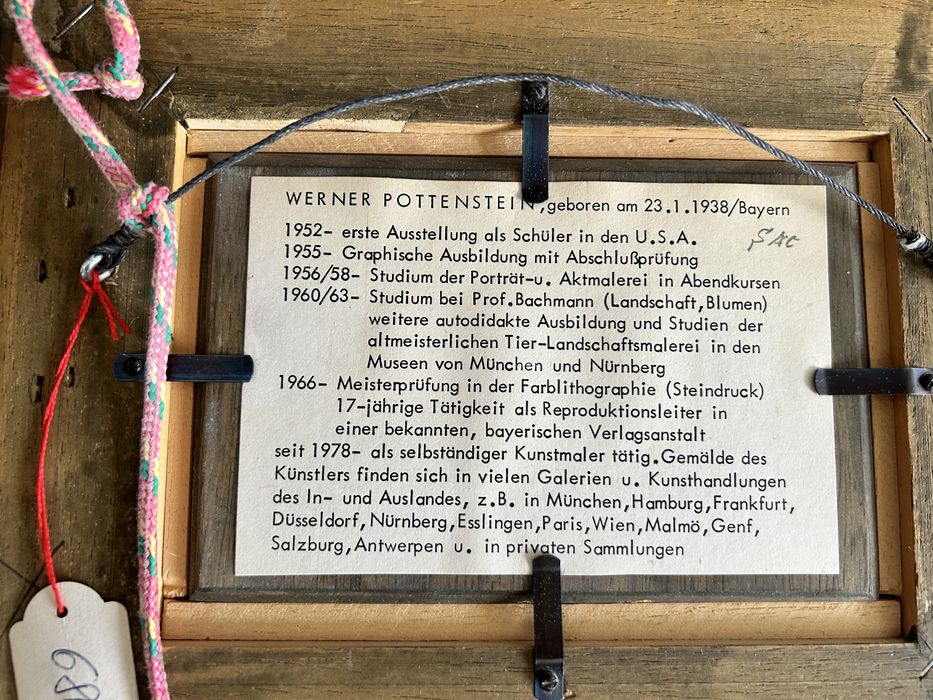 WERNER POTTENSTEIN, geboren am 23.1.1938/Bayern
1952- erste Ausstellung als Schüler in den U.S.A.
1955- Graphische Ausbildung mit Abschlußprüfung
1956/58- Studium der Porträt-u. Aktmalerei in Abendkursen
1960/63- Studium bei Prof.Bachmann (Landschaft,Blumen)
weitere autodidakte Ausbildung und Studien der
altmeisterlichen Tier-Landschaftsmalerei in den
Museen von München und Nürnberg
1966- Meisterprüfung in der Farblithographie (Steindruck)
17-jährige Tätigkeit als Reproduktionsleiter in
einer bekannten, bayerischen Verlagsanstalt
seit 1978- als selbständiger Kunstmaler tätig.Gemälde des
Künstlers finden sich in vielen Galerien u. Kunsthandlungen
des In- und Auslandes, z.B. in München,Hamburg,Frankfurt,
Düsseldorf,Nürnberg,Esslingen,Paris,Wien,Malmö,Genf,
Salzburg,Antwerpen u. in privaten Sammlungen